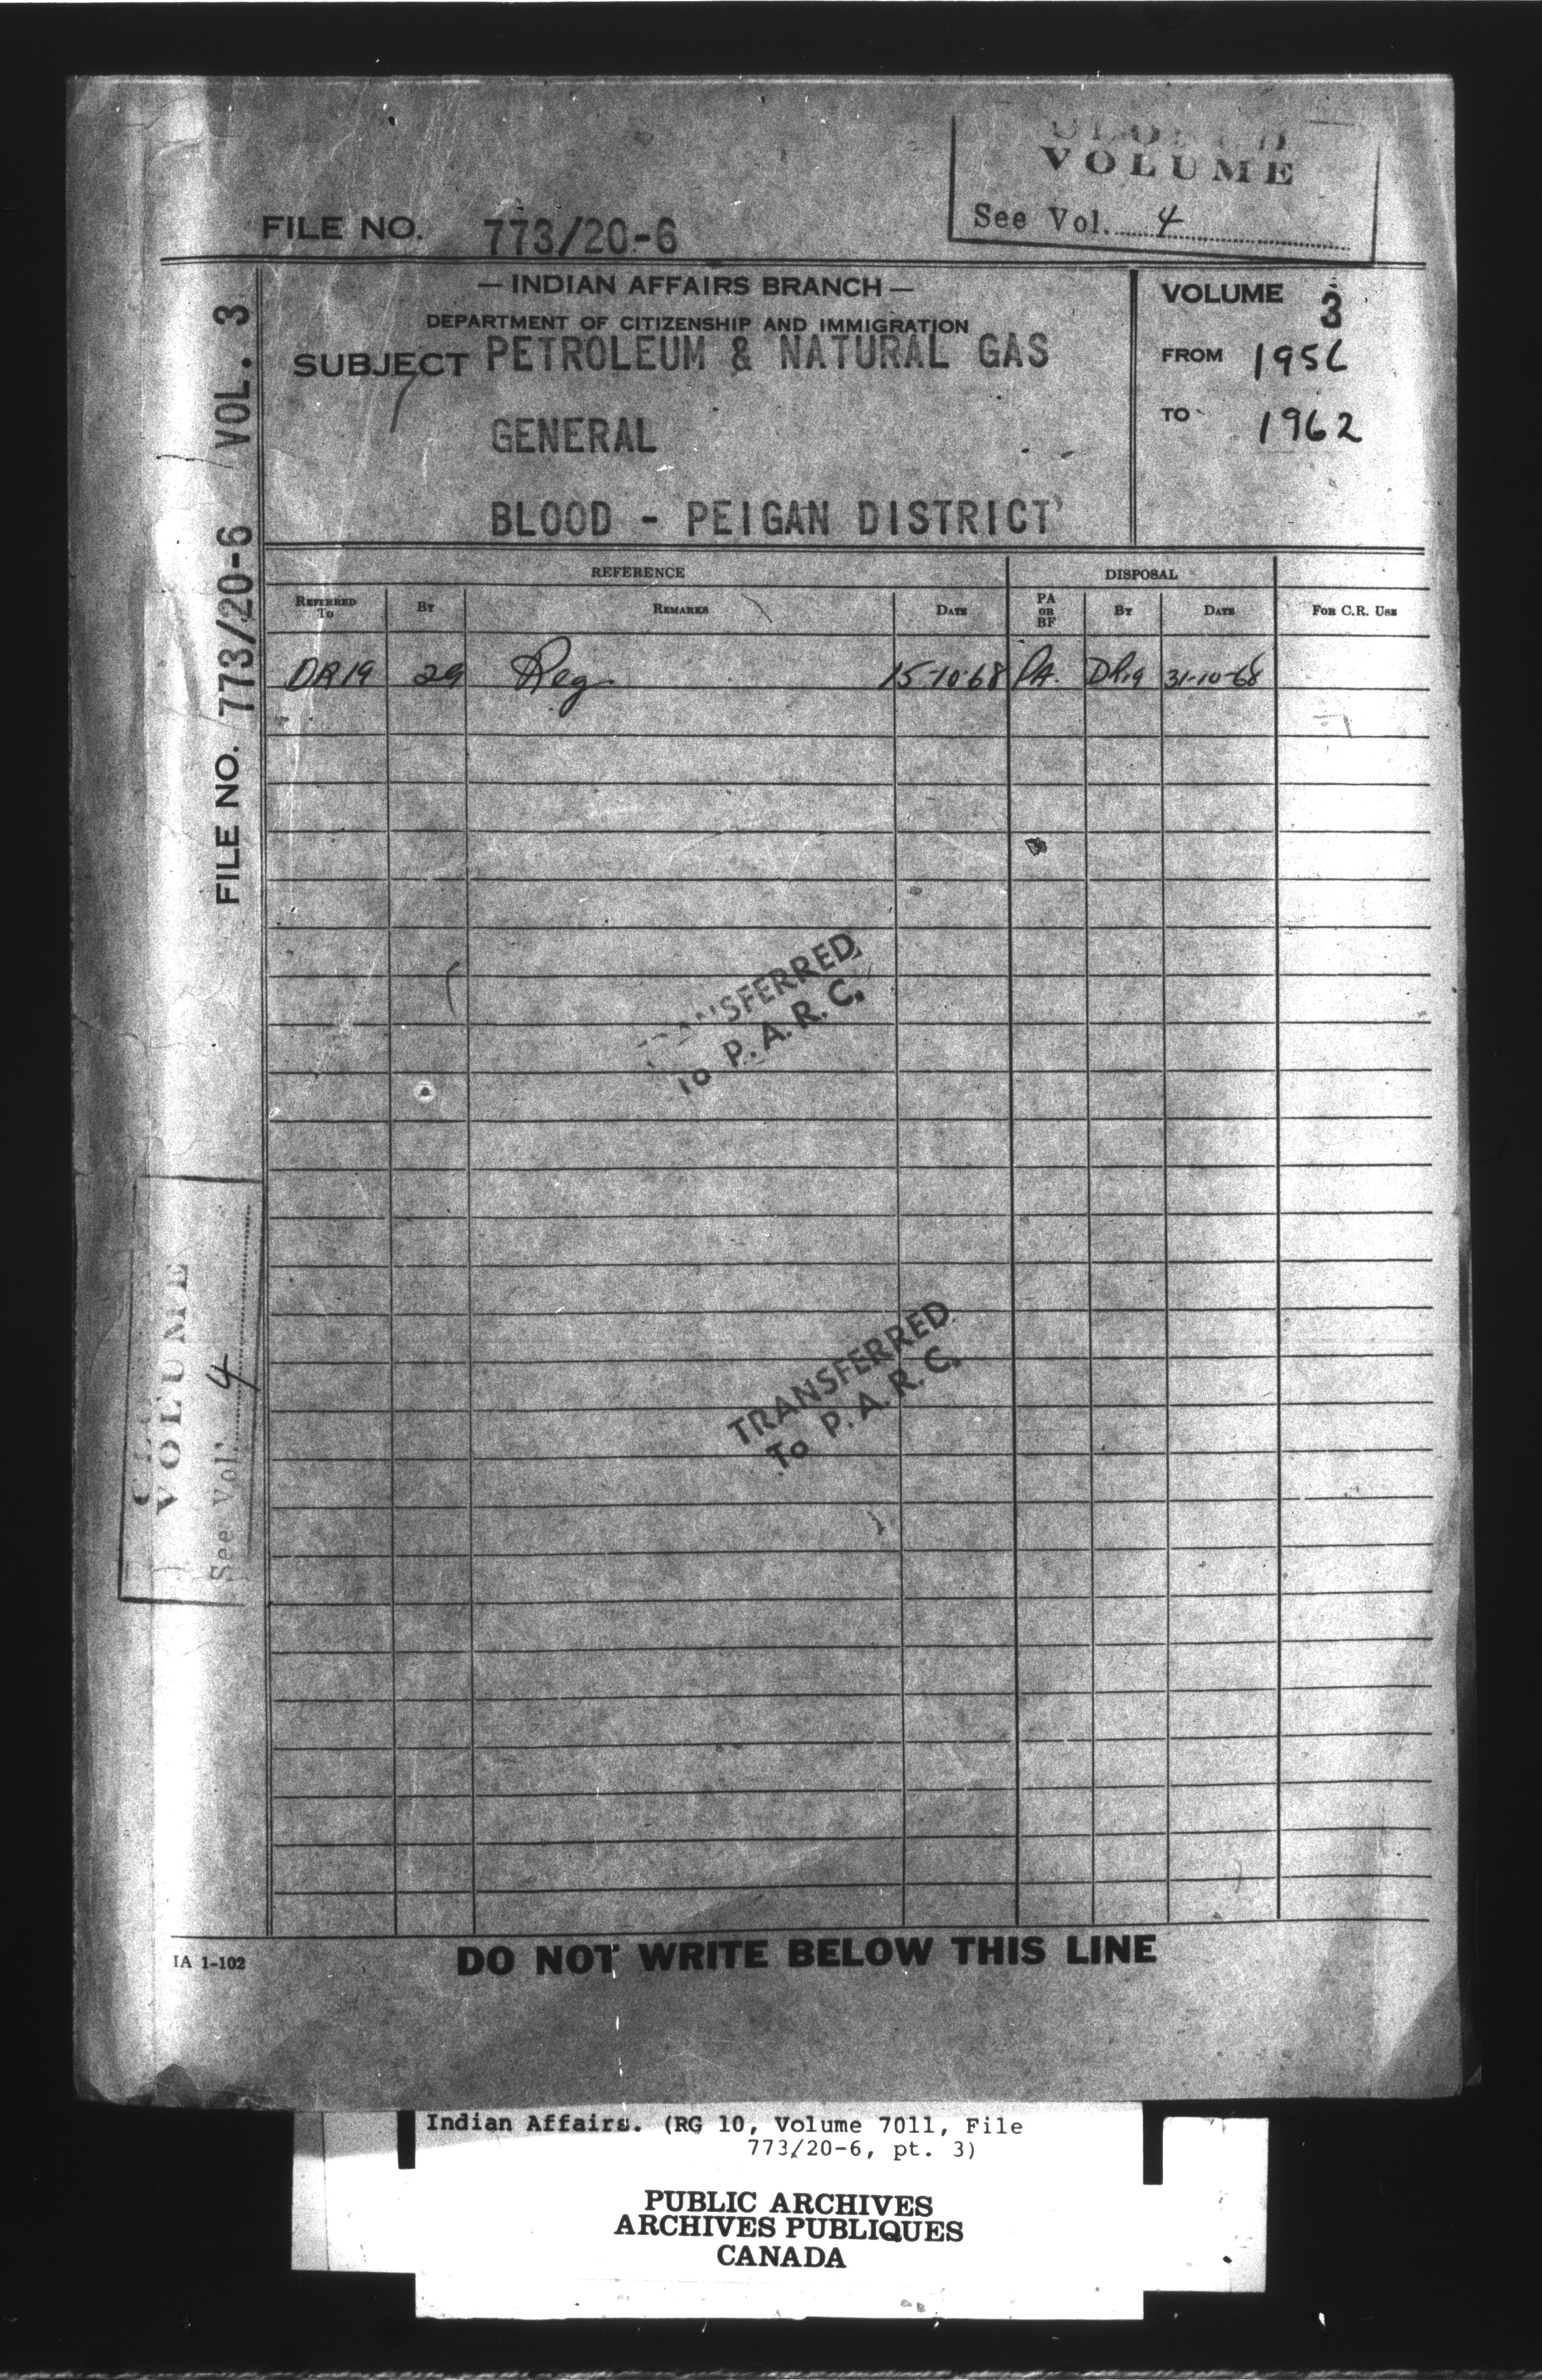 CLOSED
VOLUME
See Vol. 4
FILE NO. 773/20-6
— INDIAN AFFAIRS BRANCH —
DEPARTMENT OF CITIZENSHIP AND IMMIGRATION
SUBJECT PETROLEUM & NATURAL GAS
GENERAL
BLOOD - PEIGAN DISTRICT
VOLUME 3
FROM 1956
TO 1962
FILE NO. 773/20-6 VOL. 3
REFERENCE DISPOSAL
REFERRED TO BY REMARKS DATE PA OR BF BY DATE FOR C.R. USE
29 Reg 15-10-68 PA. 31-10-68
TRANSFERRED
To P.A.R.C.
TRANSFERRED
To P.A.R.C.
VOLUME
See Vol. 4
IA 1-102
DO NOT WRITE BELOW THIS LINE
Indian Affairs. (RG 10, Volume 7011, File
773/20-6, pt. 3)
PUBLIC ARCHIVES
ARCHIVES PUBLIQUES
CANADA